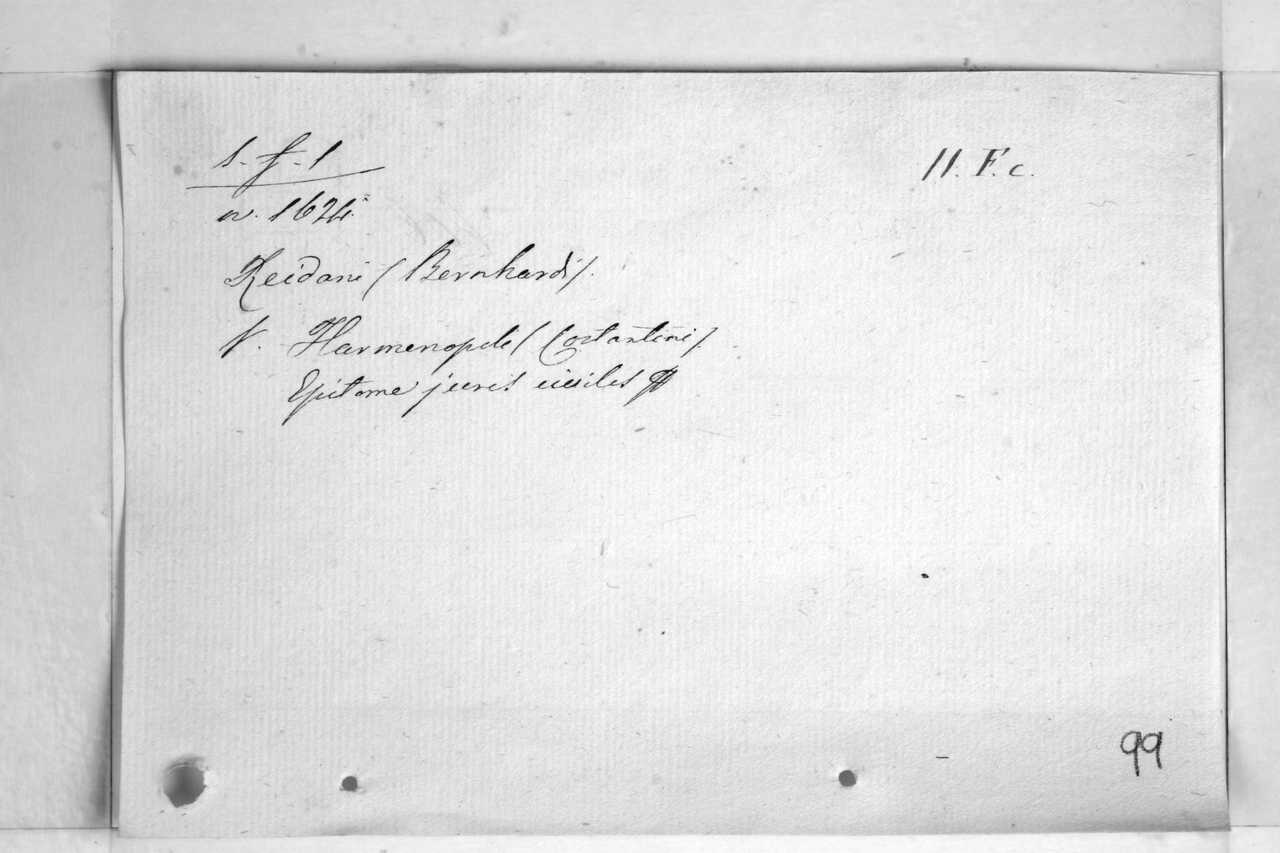 s-f-1
n. 1624.
II. F. c.
Reidani (Bernhardi).
V. Harmenopole (Costantini).
Epitome juris civiles
99